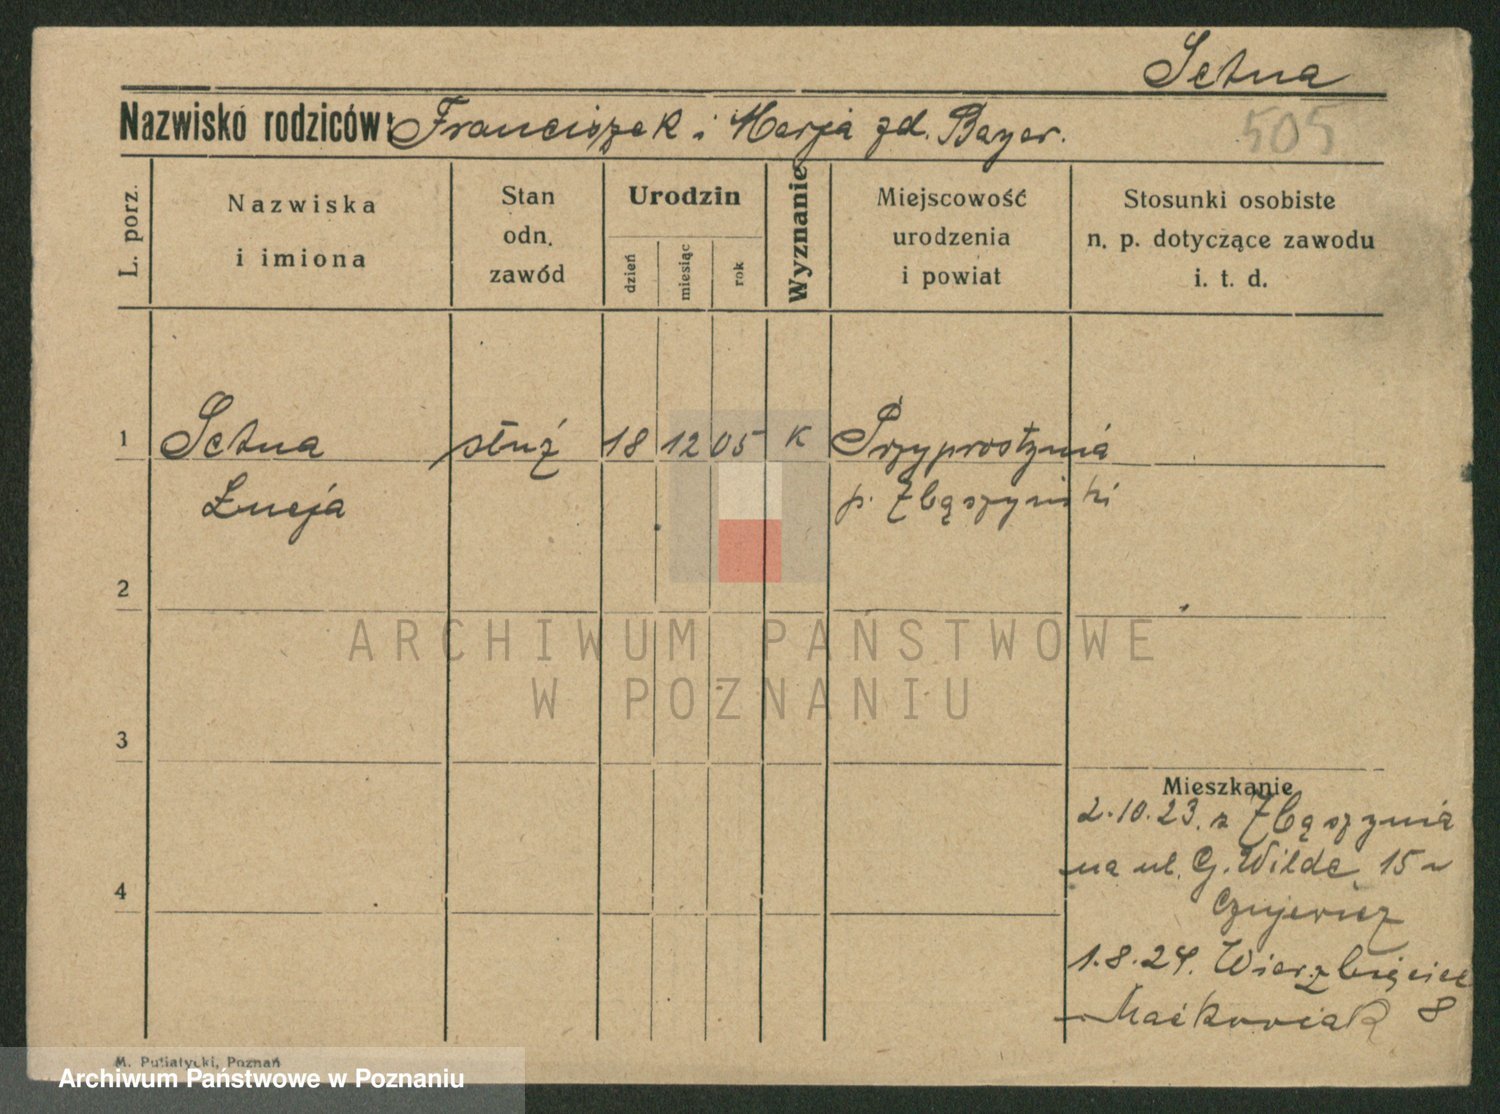 Setna
Nazwisko rodziców: Franciszek i Marja zd. Bayer.
505
L. porz.
Nazwiska
i imiona
Stan
odn.
zawód
Urodzin
dzień
miesiąc
rok
Wyznanie
Miejscowość
urodzenia
i powiat
Stosunki osobiste
n. p. dotyczące zawodu
i. t. d.
1 Setna służ 18 12 05 K Przyprostynia
Łucja p. Zbąszyński
2
ARCHIWUM PAŃSTWOWE
W POZNANIU
3
Mieszkanie
2.10.23. z Zbąszynia
na ul. G. Wilde 15
4
1.8.24. Wierzbięcice
Maćkowiak 8
M. Putiatycki, Poznań
Archiwum Państwowe w Poznaniu